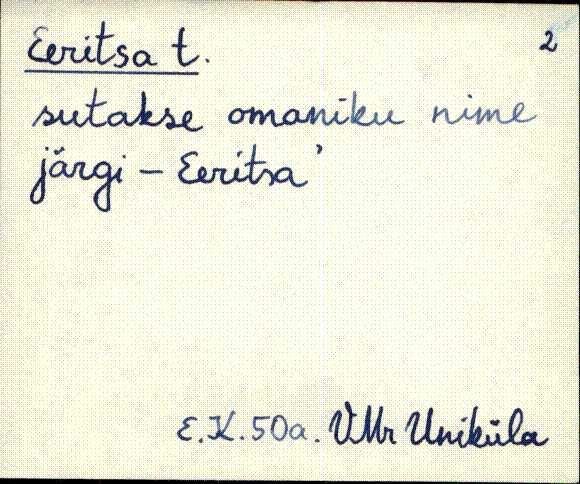 Eeritsa t. 2
sutakse omaniku nime
järgi – Eeritsa'
E.K. 50a. VMr Uniküla